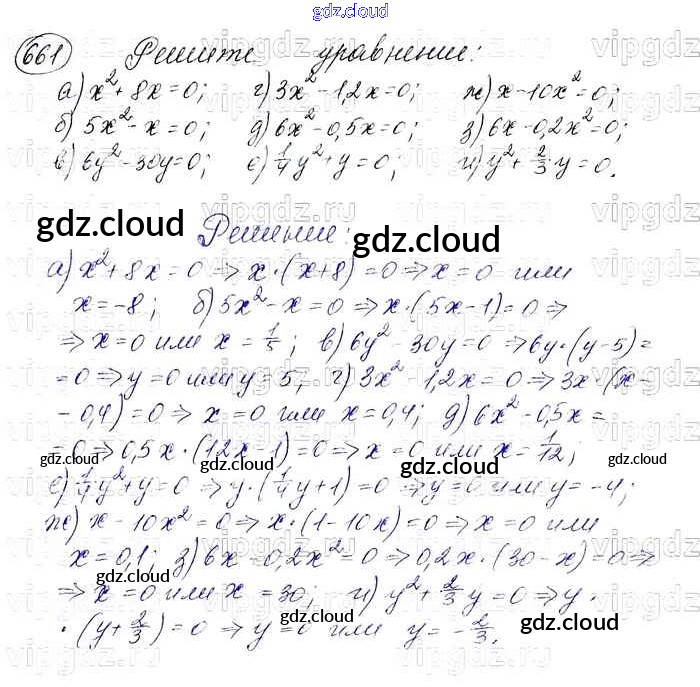 gdz.cloud
661 Решите уравнение:
а) x² + 8x = 0; г) 3x² - 1,2x = 0; ж) x - 10x² = 0;
б) 5x² - x = 0; д) 6x² - 0,5x = 0; з) 6x - 0,2x² = 0;
в) 6y² - 30y = 0; е) 1/4 y² + y = 0; и) y² + 2/3 y = 0.
gdz.cloud Решение: gdz.cloud
а) x² + 8x = 0 ⇒ x · (x + 8) = 0 ⇒ x = 0 или
x = -8; б) 5x² - x = 0 ⇒ x · (5x - 1) = 0 ⇒
⇒ x = 0 или x = 1/5; в) 6y² - 30y = 0 ⇒ 6y · (y - 5) =
= 0 ⇒ y = 0 или y = 5; г) 3x² - 1,2x = 0 ⇒ 3x · (x -
- 0,4) = 0 ⇒ x = 0 или x = 0,4; д) 6x² - 0,5x =
= 0 ⇒ 0,5x · (12x - 1) = 0 ⇒ x = 0 или x = 1/12;
gdz.cloud gdz.cloud gdz.cloud gdz.cloud
е) 1/4 y² + y = 0 ⇒ y · (1/4 y + 1) = 0 ⇒ y = 0 или y = -4;
ж) x - 10x² = 0 ⇒ x · (1 - 10x) = 0 ⇒ x = 0 или
x = 0,1; з) 6x - 0,2x² = 0 ⇒ 0,2x · (30 - x) = 0 ⇒
gdz.cloud gdz.cloud
⇒ x = 0 или x = 30; и) y² + 2/3 y = 0 ⇒ y ·
· (y + 2/3) = 0 ⇒ y = 0 или y = - 2/3.
gdz.cloud
vipgdz.ru